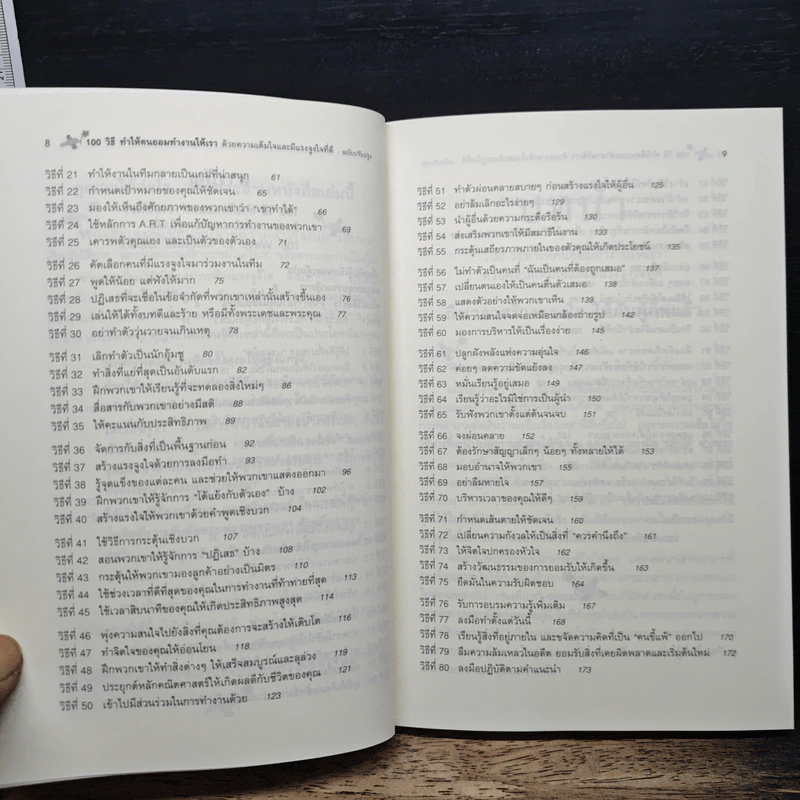 8 100 วิธี ทำให้คนยอมทำงานให้เรา ด้วยความเต็มใจและมีแรงจูงใจที่ดี : ฉบับปรับปรุง
วิธีที่ 21 ทำให้งานในทีมกลายเป็นเกมที่น่าสนุก 61
วิธีที่ 22 กำหนดเป้าหมายของคุณให้ชัดเจน 65
วิธีที่ 23 มองให้เห็นถึงศักยภาพของพวกเขาว่า "เขาทำได้" 66
วิธีที่ 24 ใช้หลักการ A.R.T เพื่อแก้ปัญหาการทำงานของพวกเขา 69
วิธีที่ 25 เคารพตัวคุณเอง และเป็นตัวของตัวเอง 71
วิธีที่ 26 คัดเลือกคนที่มีแรงจูงใจมาร่วมงานในทีม 72
วิธีที่ 27 พูดให้น้อย แต่ฟังให้มาก 75
วิธีที่ 28 ปฏิเสธที่จะเชื่อในข้อจำกัดที่พวกเขาเหล่านั้นสร้างขึ้นเอง 76
วิธีที่ 29 เล่นให้ได้ทั้งบทดีและร้าย หรือมีทั้งพระเดชและพระคุณ 77
วิธีที่ 30 อย่าทำตัววุ่นวายจนเกินเหตุ 78
วิธีที่ 31 เลิกทำตัวเป็นนักอุ้มชู 80
วิธีที่ 32 ทำสิ่งที่แย่ที่สุดเป็นอันดับแรก 82
วิธีที่ 33 ฝึกพวกเขาให้เรียนรู้ที่จะทดลองสิ่งใหม่ๆ 86
วิธีที่ 34 สื่อสารกับพวกเขาอย่างมีสติ 88
วิธีที่ 35 ให้คะแนนกับประสิทธิภาพ 89
วิธีที่ 36 จัดการกับสิ่งที่เป็นพื้นฐานก่อน 92
วิธีที่ 37 สร้างแรงจูงใจด้วยการลงมือทำ 93
วิธีที่ 38 รู้จุดแข็งของแต่ละคน และช่วยให้พวกเขาแสดงออกมา 96
วิธีที่ 39 ฝึกพวกเขาให้รู้จักการ "โต้แย้งกับตัวเอง" บ้าง 102
วิธีที่ 40 สร้างแรงจูงใจให้พวกเขาด้วยคำพูดเชิงบวก 104
วิธีที่ 41 ใช้วิธีการกระตุ้นเชิงบวก 107
วิธีที่ 42 สอนพวกเขาให้รู้จักการ "ปฏิเสธ" บ้าง 108
วิธีที่ 43 กระตุ้นให้พวกเขามองลูกค้าอย่างเป็นมิตร 110
วิธีที่ 44 ใช้ช่วงเวลาที่ดีที่สุดของคุณในการทำงานที่ท้าทายที่สุด 113
วิธีที่ 45 ใช้เวลาสิบนาทีของคุณให้เกิดประสิทธิภาพสูงสุด 114
วิธีที่ 46 พุ่งความสนใจไปยังสิ่งที่คุณต้องการจะสร้างให้เติบโต 116
วิธีที่ 47 ทำจิตใจของคุณให้อ่อนโยน 118
วิธีที่ 48 ฝึกพวกเขาให้ทำสิ่งต่างๆ ให้เสร็จสมบูรณ์และลุล่วง 119
วิธีที่ 49 ประยุกต์หลักคณิตศาสตร์ให้เกิดผลดีกับชีวิตของคุณ 121
วิธีที่ 50 เข้าไปมีส่วนร่วมในการทำงานด้วย 123
9
วิธีที่ 51 ทำตัวผ่อนคลายสบายๆ ก่อนสร้างแรงจูงใจให้ผู้อื่น 125
วิธีที่ 52 อย่าล้มเลิกอะไรง่ายๆ 129
วิธีที่ 53 นำผู้อื่นด้วยความกระตือรือร้น 130
วิธีที่ 54 ส่งเสริมพวกเขาให้มีสมาธิในงาน 133
วิธีที่ 55 กระตุ้นเสถียรภาพภายในของตัวคุณให้เกิดประโยชน์ 135
วิธีที่ 56 ไม่ทำตัวเป็นคนที่ "ฉันเป็นคนที่ต้องถูกเสมอ" 137
วิธีที่ 57 เปลี่ยนตนเองให้เป็นคนตื่นตัวเสมอ 138
วิธีที่ 58 แสดงตัวอย่างให้พวกเขาเห็น 139
วิธีที่ 59 ให้ความสนใจจดจ่อเหมือนกล้องถ่ายรูป 142
วิธีที่ 60 มองการบริหารให้เป็นเรื่องง่าย 145
วิธีที่ 61 ปลูกฝังพลังแห่งความอุ่นใจ 146
วิธีที่ 62 ค่อยๆ ลดความขัดแย้งลง 147
วิธีที่ 63 หมั่นเรียนรู้อยู่เสมอ 149
วิธีที่ 64 เรียนรู้ว่าอะไรมิใช่การเป็นผู้นำ 150
วิธีที่ 65 รับฟังพวกเขาตั้งแต่ต้นจนจบ 151
วิธีที่ 66 จงผ่อนคลาย 152
วิธีที่ 67 ต้องรักษาสัญญาเล็กๆ น้อยๆ ทั้งหลายให้ได้ 153
วิธีที่ 68 มอบอำนาจให้พวกเขา 155
วิธีที่ 69 อย่าลืมหายใจ 157
วิธีที่ 70 บริหารเวลาของคุณให้ดีๆ 159
วิธีที่ 71 กำหนดเส้นตายให้ชัดเจน 160
วิธีที่ 72 เปลี่ยนความกังวลให้เป็นสิ่งที่ "ควรคำนึงถึง" 161
วิธีที่ 73 ให้จิตใจปกครองหัวใจ 162
วิธีที่ 74 สร้างวัฒนธรรมของการยอมรับให้เกิดขึ้น 163
วิธีที่ 75 ยึดมั่นในความรับผิดชอบ 164
วิธีที่ 76 รับการอบรมความรู้เพิ่มเติม 167
วิธีที่ 77 ลงมือทำตั้งแต่วันนี้ 168
วิธีที่ 78 เรียนรู้สิ่งที่อยู่ภายใน และขจัดความคิดที่เป็น "คนขี้แพ้" ออกไป 170
วิธีที่ 79 ลืมความล้มเหลวในอดีต ยอมรับสิ่งที่เคยผิดพลาดและเริ่มต้นใหม่ 172
วิธีที่ 80 ลงมือปฏิบัติตามคำแนะนำ 173